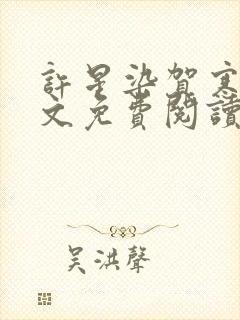 許星染賀寒
文免費閱讀
吳洪聲